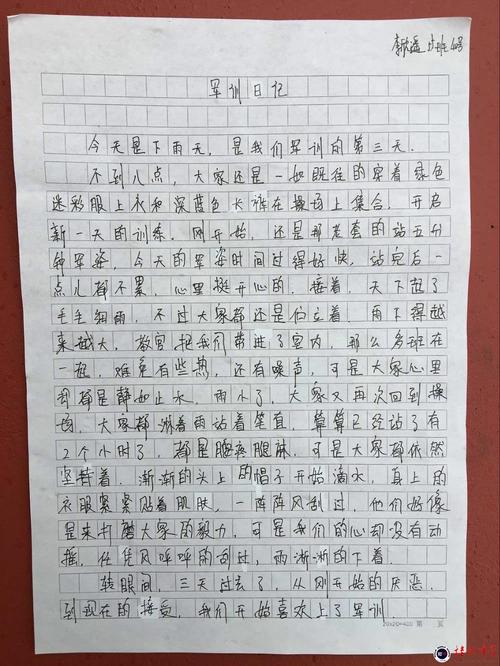 李欣遥
军训日记
今天是下雨天，是我们军训的第三天。
不到八点，大家还是一如既往的穿着绿色
迷彩服上衣和深蓝色长裤在操场上集合，开启
新一天的训练。刚开始，还是那老套的站五分
钟军姿，今天的军姿时间过得好快，站完后一
点儿都不累，心里挺开心的，接着，天下起了
毛毛细雨，不过大家都还是伫立着，雨下得越
来越大，教官把我们带进了室内，那么多班在
一起，难免有些热，还有噪声，可是大家心里
却都是静如止水，雨小了，大家又再次回到操
场，大家都淋着雨站着笔直，算算已经站了有
2个小时了，都是腰疼腿麻，可是大家都依然
坚持着，渐渐的头上的帽子开始滴水，身上的
衣服紧紧贴着肌肤，一阵阵风刮过，他们好像
是来打磨大家的毅力，可是我们的心却没有动
摇，任凭风呼呼的刮过，雨淅淅的下着。
转眼间，三天过去了，从刚开始的厌恶，
到现在的接受，我们开始喜欢上了军训
20x20=400 第 页